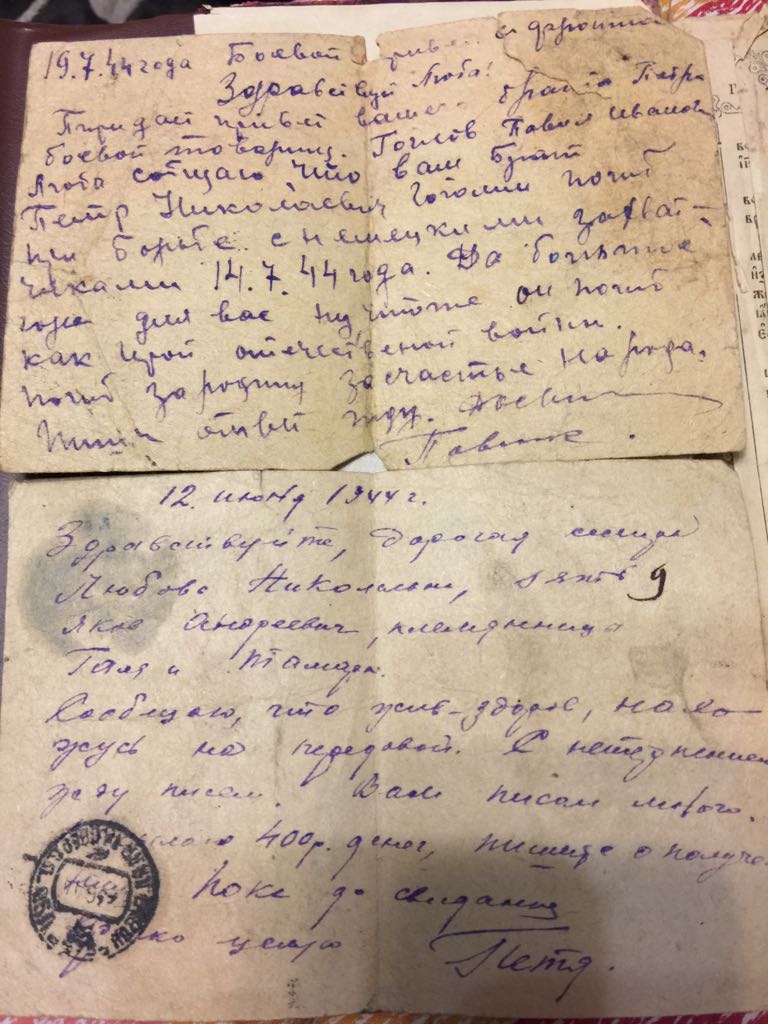 19.7.44 года Боевой привет с фронта
Здравствуй Люба!
Передает привет вашего брата Петра
боевой товарищ. Павел Иванович
Люба собщаю что ваш брат
Петр Николаевич погиб
при борьбе с немецкими захват-
чиками 14.7.44 года. Да большие
горе для вас ну, чтоже он погиб
как ирой отечественой войны.
погиб зародину засчастье народа.
Пиши ответ жду.
Павлик.
12. июня 1944 г.
Здравствуйте, дорогая сестра
Любовь Николаевна, зять 9
Яков Андреевич, племянница
Галя и Тамара.
Сообщаю, что жив-здоров, нахо-
жусь на передовой. С нетерпением
жду писем. Вам писал много.
400р. денег, пишите о получе.
Пока до свидания
целую Петя.